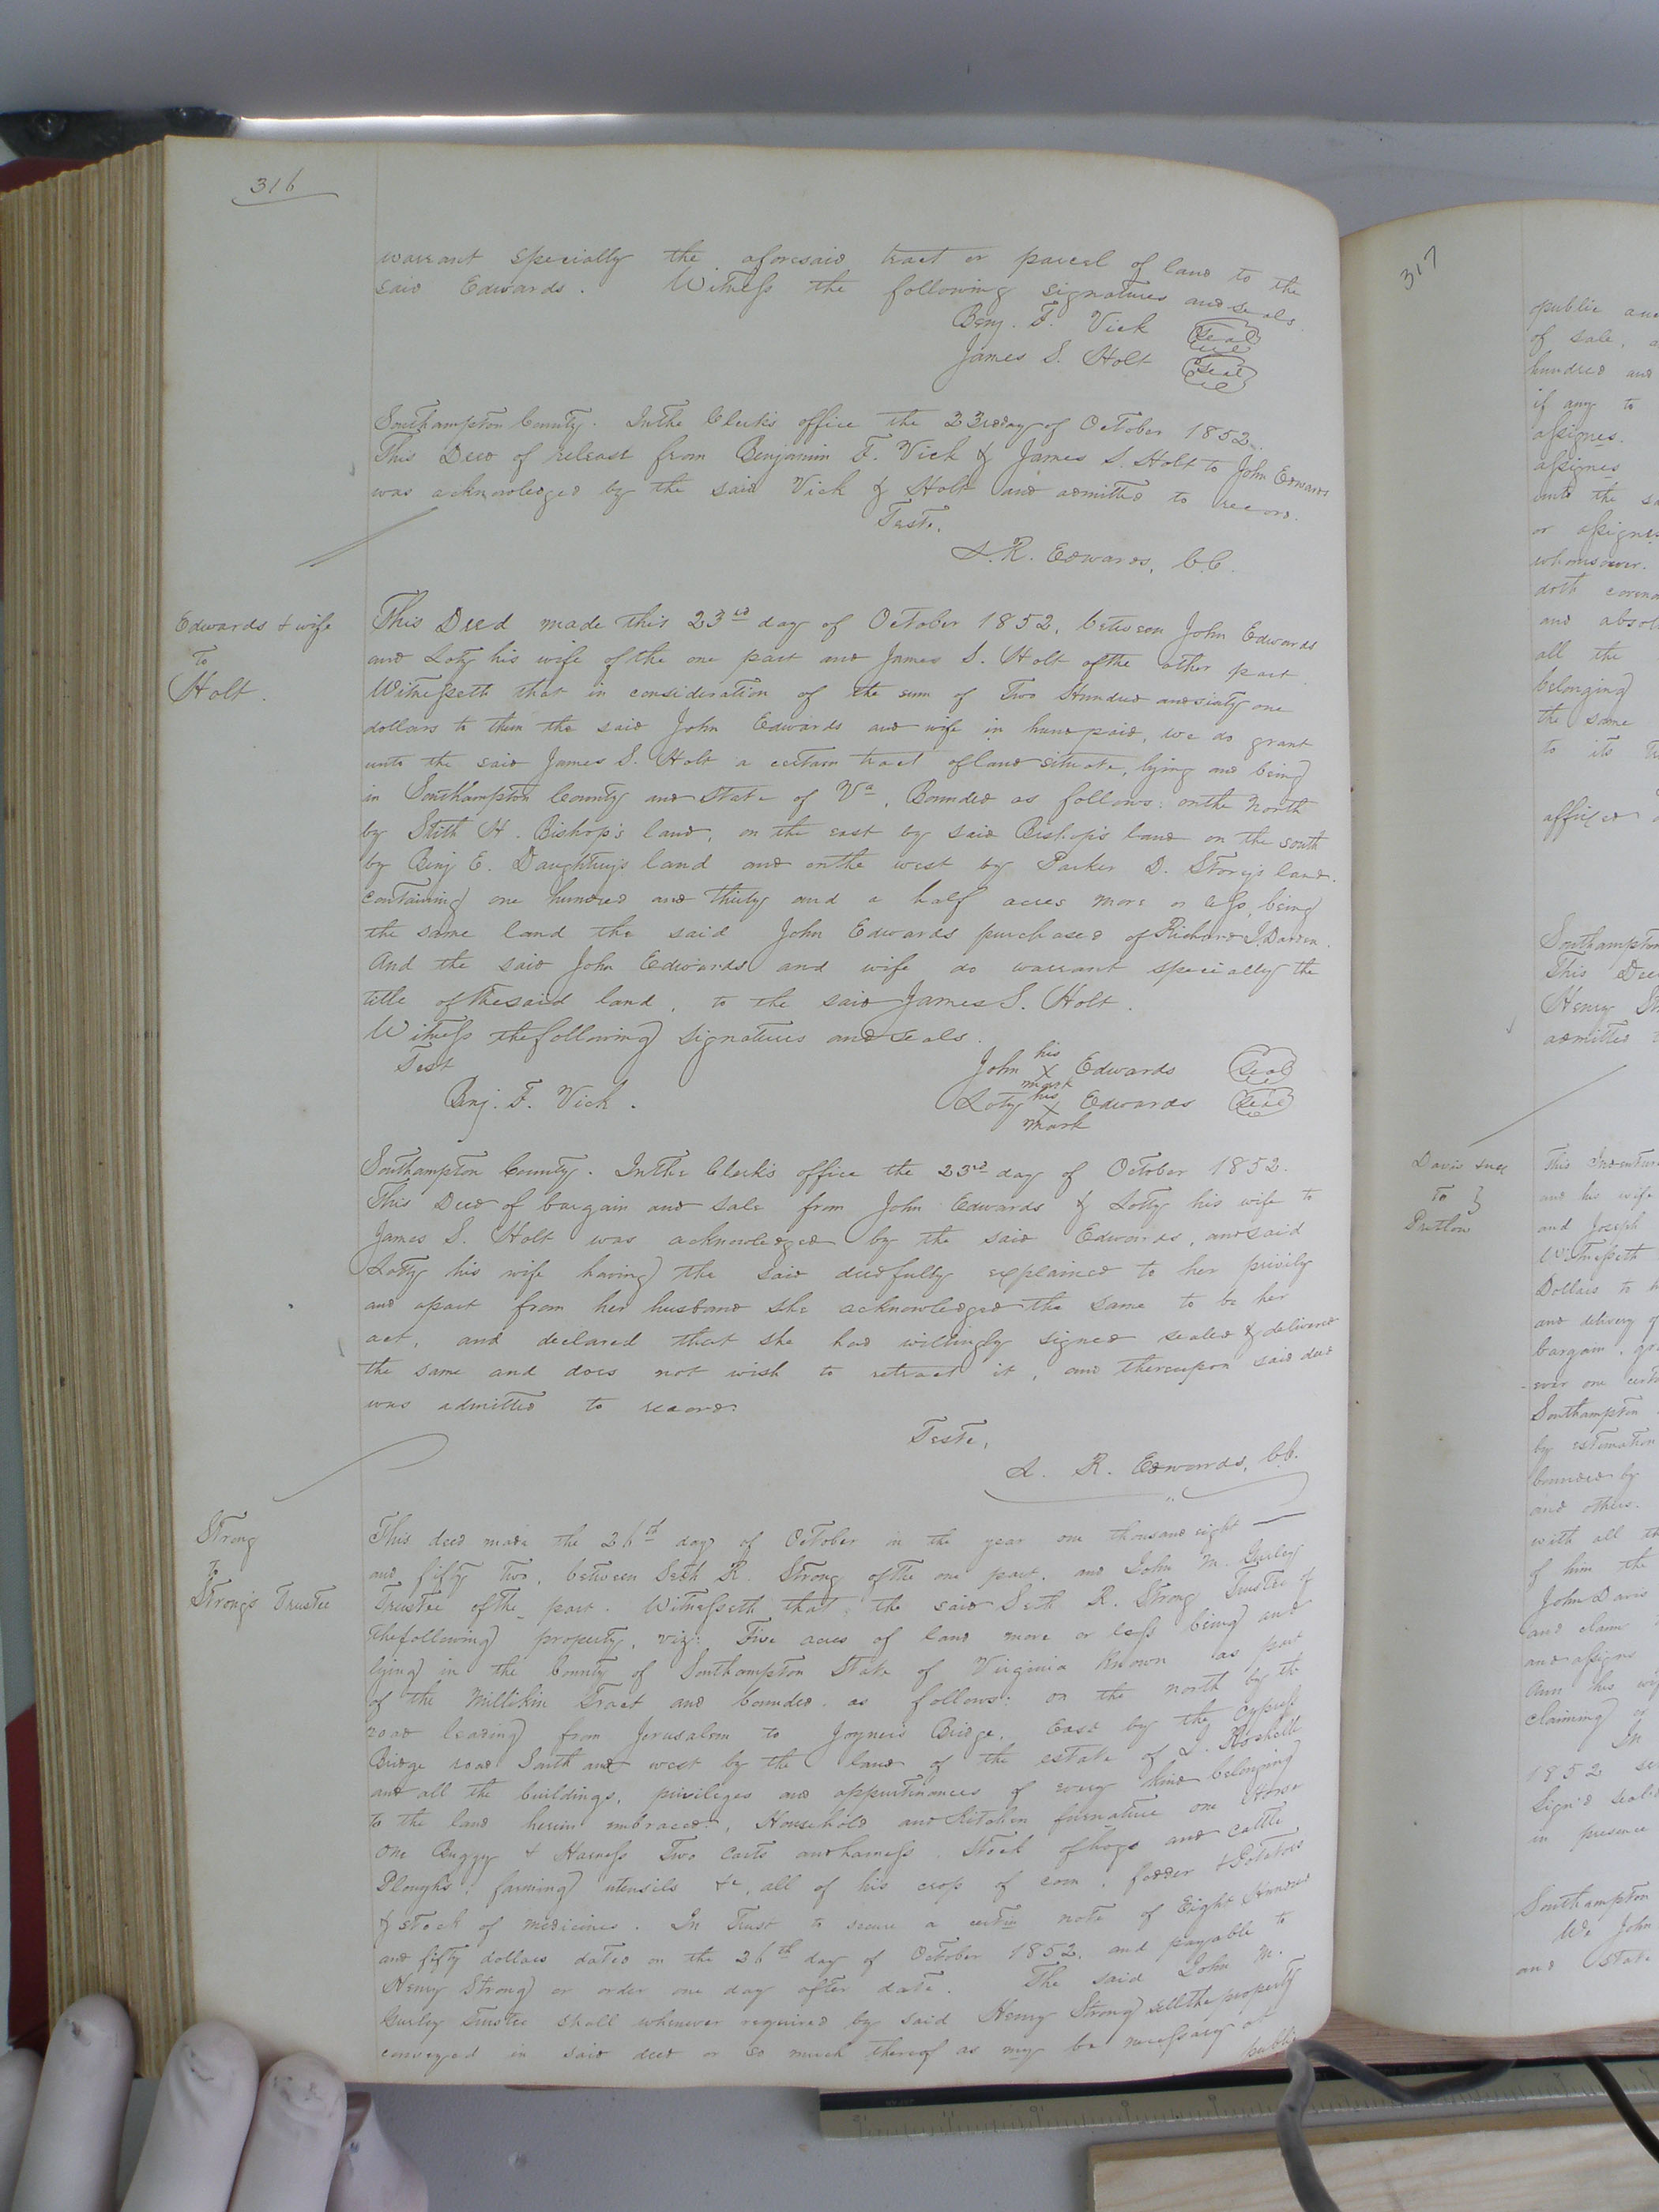 316
warrant specially the aforesaid tract or parcel of land to the
said Edwards. Witness the following signatures and seals.
Benj. F. Vick Seal
James S. Holt Seal
Southampton County. In the Clerk's office the 23rd day of October 1852.
This Deed of release from Benjamin F. Vick & James S. Holt to John Edwards
was acknowledged by the said Vick & Holt and admitted to record.
Teste,
L. R. Edwards, C.C.
Edwards & wife
To
Holt.
This Deed made this 23rd day of October 1852, between John Edwards
and Loty his wife of the one part and James S. Holt of the other part
Witnesseth that in consideration of the sum of Two Hundred and sixty one
dollars to them the said John Edwards and wife in hand paid, we do grant
unto the said James S. Holt a certain tract of land situate, lying and being
in Southampton County and State of Va, Bounded as follows: on the North
by Stith H. Bishop's land, on the east by said Bishop's land on the south
by Benj E. Daughtrey's land and on the west by Parker D. Story's land.
containing one hundred and thirty and a half acres more or less, being
the same land the said John Edwards purchased of Richard J. Darden.
And the said John Edwards and wife do warrant specially the
title of the said land, to the said James S. Holt.
Witness the following signatures and seals.
Test
Benj. F. Vick.
John his X mark Edwards Seal
Loty his X mark Edwards Seal
Southampton County. In the Clerk's office the 23rd day of October 1852.
This Deed of bargain and sale from John Edwards & Lotty his wife to
James S. Holt was acknowledged by the said Edwards, and said
Lotty his wife having the said deed fully explained to her privily
and apart from her husband she acknowledged the same to be her
act, and declared that she had willingly signed sealed & delivered
the same and does not wish to retract it, and thereupon said deed
was admitted to record:
Teste,
L. R. Edwards, C.C.
Strong
To
Strong's Trustee
This deed made the 26th day of October in the year one thousand eight
and fifty two, between Seth R. Strong of the one part, and John M. Gurley
Trustee of the part. Witnesseth that the said Seth R. Strong Trustee of
the following property, viz: Five acres of land more or less being and
lying in the County of Southampton State of Virginia known as part
of the Millikin Tract and bounded as follows: on the north by the
road leading from Jerusalem to Joyner's Bridge, East by the Cypress
Bridge road South and west by the land of the estate of J. Rochelle
and all the buildings, privileges and appurtenances of every kind belonging
to the land herein embraced, Household and Kitchen furnature one Horse
One Buggy & Harness Two carts and harness. Stock of hogs and cattle
Ploughs, farming utensils &c, all of his crop of corn, fodder & Potatoes
& stock of medicines. In Trust to secure a certin note of Eight Hundred
and fifty dollars dated on the 26th day of October 1852, and payable to
Henry Strong or order one day after date. The said John M.
Gurley Trustee shall whenever required by said Henry Strong sell the property
conveyed in said deed or so much thereof as my be necessary at
public
317
public auc
of sale, a
hundred and
if any to
assignes.
assignes
unto the sa
or assigne
whomsoever.
doth covena
and absol
all the
belonging
the same
to its
affixed
Southampton
This Deed
Henry St
admitted t
Davis
To }
Pretlow
This Indenture
and his wife
and Joseph
Witnesseth
Dollars to h
and delivery of
bargain, gra
ever one certa
Southampton
by estimation
bounded by
and others.
with all th
of him the
John Davis
and claim
and assigns
Ann his wif
claiming or
In
1852
Sign'd Seal'd
in presence
Southampton
We John
and State